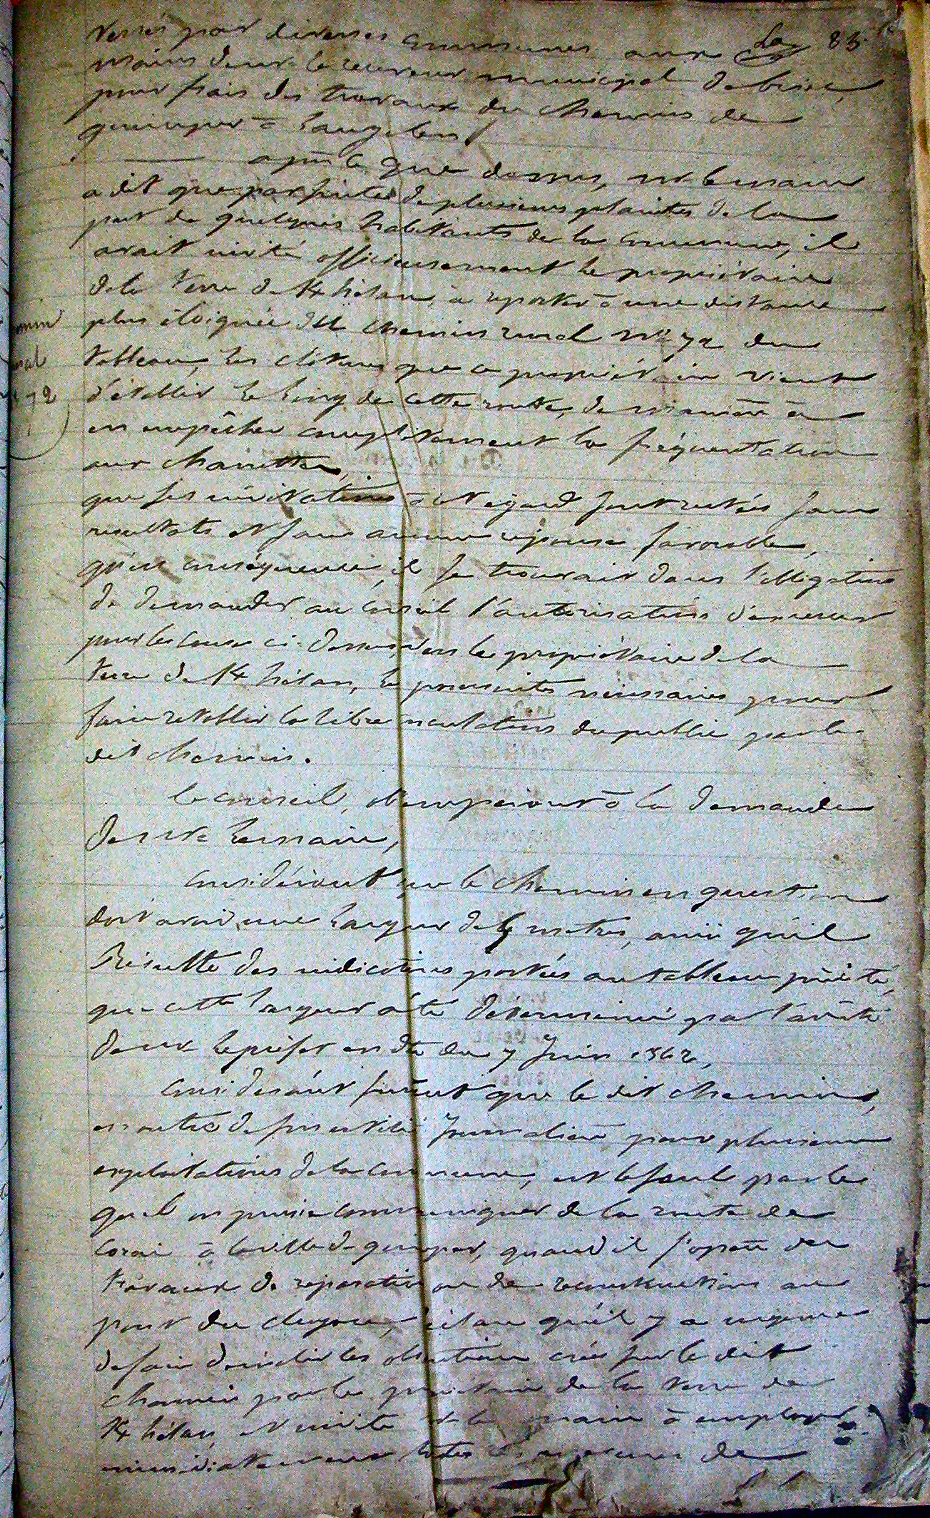 versés par diverses communes aux 83.
mains de Mr le receveur municipal de briec,
pour frais des travaux du chemin de
quimper à Langolen /
après ce que dessus, Mr le maire
a dit que par suite de plusieurs plaintes de la
part de quelques habitants de la commune, il
avait invité officieusement le propriétaire
de la terre de Khélan à reporter à une distance
plus éloignée du chemin rural No 72 du
tableau, les clôtures que ce propriétaire vient
d'établir le long de cette route, de manière à
en empêcher complètement la fréquentation
aux charrettes,
que ses invitations à cet égard sont restées sans
resultats et sans aucune réponse favorable,
qu'en conséquence, il se trouvait dans l'obligation
de demander au conseil l'autorisation d'exercer
pour les causes ci-dessus, vers le propriétaire de la
terre de Khélan, les poursuites nécessaires pour
faire rétablir la libre circulation du public par le
dit chemin.
Le conseil, obtempérant à la demande
de Mr le maire,
considérant que le chemin en question
doit avoir une largeur de mètres, ainsi qu'il
Résulte des indications portées au tableau précité,
que cette largeur a été déterminée par l'arrêté
de Mr le préfet en dte du 7 Juin 1862,
considérant surtout que le dit chemin,
en outre de son utilité journalière pour plusieurs
exploitations de la commune, est le seul par le
quel on puisse communiquer de la route de
Corai à la ville de quimper, quand il s'opère des
travaux de réparation ou de reconstruction au
pont du , déclare qu'il y a urgence
de faire les obstructions créées sur le dit
chemin par le propriétaire de la terre de
Khélan, et invite Mr le maire à employer
immédiatement toutes les mesures de
72